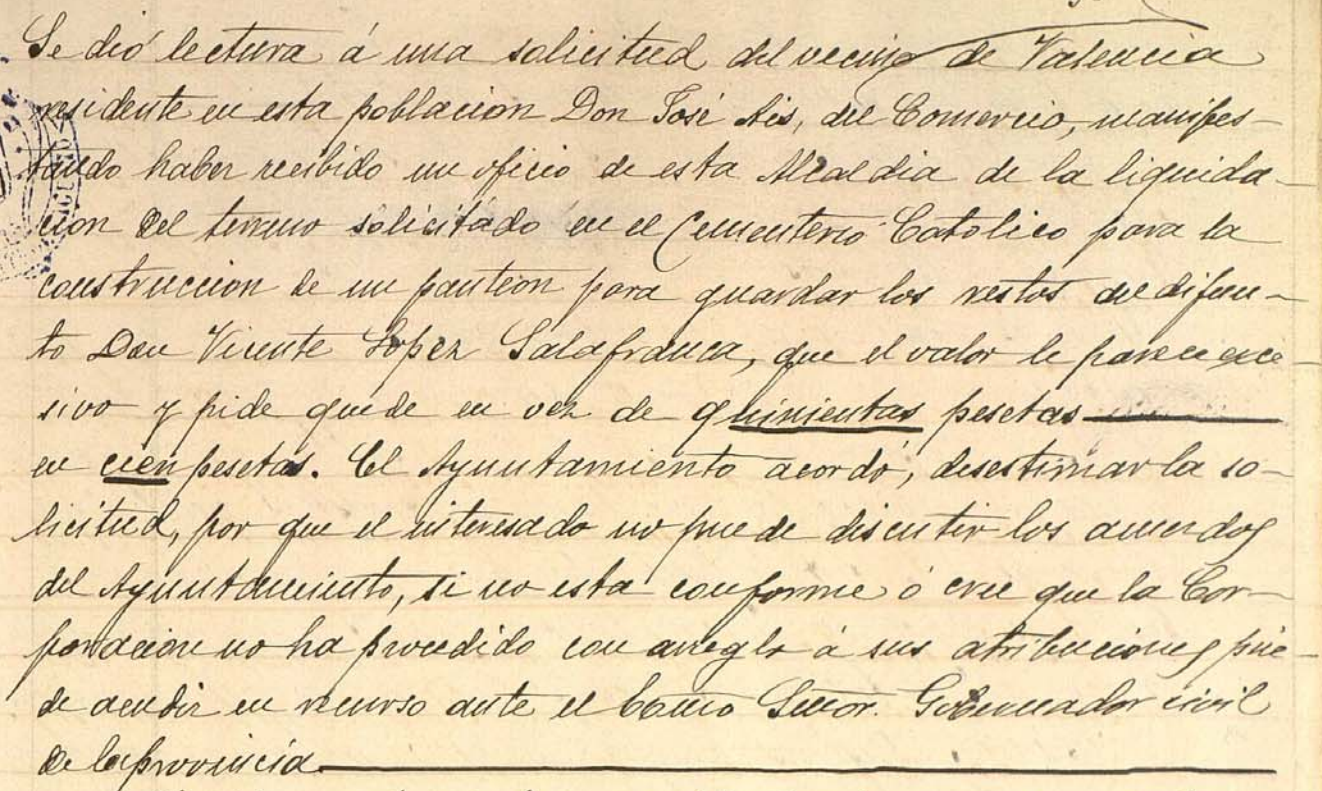 Se dió lectura á una solicitud del vecino de Valencia
residente en esta poblacion Don José Ais, del Comercio, manifes-
tando haber recibido un oficio de esta Alcaldia de la liquida-
cion del terreno solicitado en el Cementerio Catolico para la
construccion de un panteon para guardar los restos del difun-
to Don Vicente Lopez Salafranca, que el valor le parece exce-
sivo y pide quede en vez de quinientas pesetas
en cien pesetas. El Ayuntamiento acordó, desestimar la so-
licitud, por que el interesado no puede discutir los acuerdos
del Ayuntamiento, si no esta conforme ó cree que la Cor-
poracion no ha procedido con arreglo á sus atribuciones pue-
de acudir en recurso ante el Señor. Gobernador civil
de la provincia.